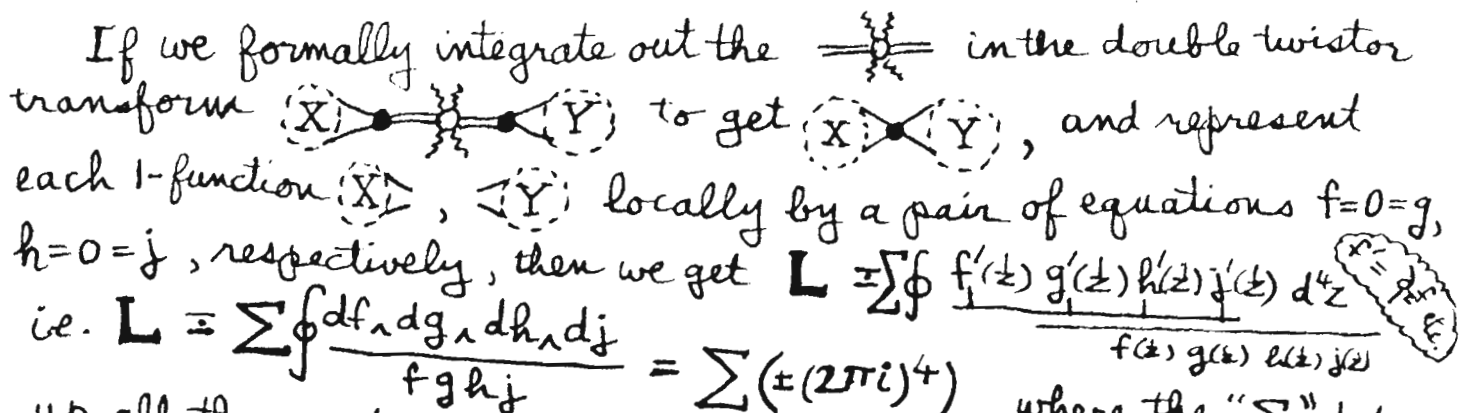 If we formally integrate out the in the double twistor
transform X Y to get X Y , and represent
each 1-function X , Y locally by a pair of equations f=0=g,
h=0=j, respectively, then we get L = ∑∮ f'(z) g'(z) h'(z) j'(z) d⁴z / f(z) g(z) h(z) j(z)
i.e. L = ∑∮ df∧dg∧dh∧dj / fghj = ∑(±(2πi)⁴)
where the "∑"